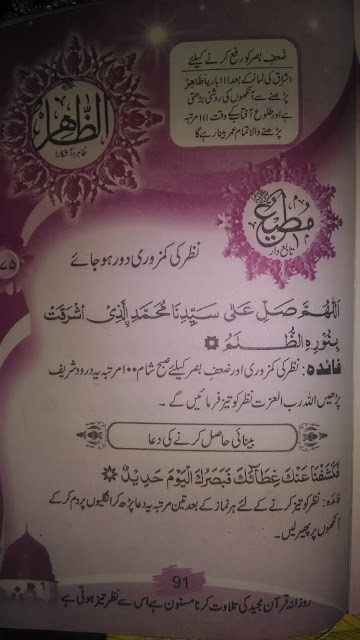 ضعفِ بصر کو رفع کرنے کیلئے
اشراق کی نماز کے بعد ۱۱۱ بار یا ظاہرُ
پڑھنے سے آنکھوں کی روشنی بڑھتی
ہے اور طلوع آفتاب کے وقت ۱۱۱ مرتبہ
پڑھنے والا تمام عمر بینا رہے گا
الظاہر
ظاہر و آشکارا
مطیع
تابع دار
۷۵
نظر کی کمزوری دور ہو جائے
اَللّٰهُمَّ صَلِّ عَلٰی سَیِّدِنَا مُحَمَّدِ ۨالَّذِیْ اَشْرَقَتْ
بِنُوْرِهِ الظُّلَمُ
فائدہ: نظر کی کمزوری اور ضعفِ بصر کیلئے صبح شام ۱۰۰ مرتبہ یہ درود شریف
پڑھیں اللہ رب العزت نظر کو تیز فرمائیں گے۔
بینائی حاصل کرنے کی دعا
فَكَشَفْنَا عَنْكَ غِطَآئَكَ فَبَصَرُكَ الْيَوْمَ حَدِيْدٌ
فائدہ: نظر کو تیز کرنے کے لئے ہر نماز کے بعد تین مرتبہ یہ دعا پڑھ کر انگلیوں پر دم کر کے
آنکھوں پر پھیر لیں۔
91
روزانہ قرآن مجید کی تلاوت کرنا مسنون ہے اس سے نظر تیز ہوتی ہے